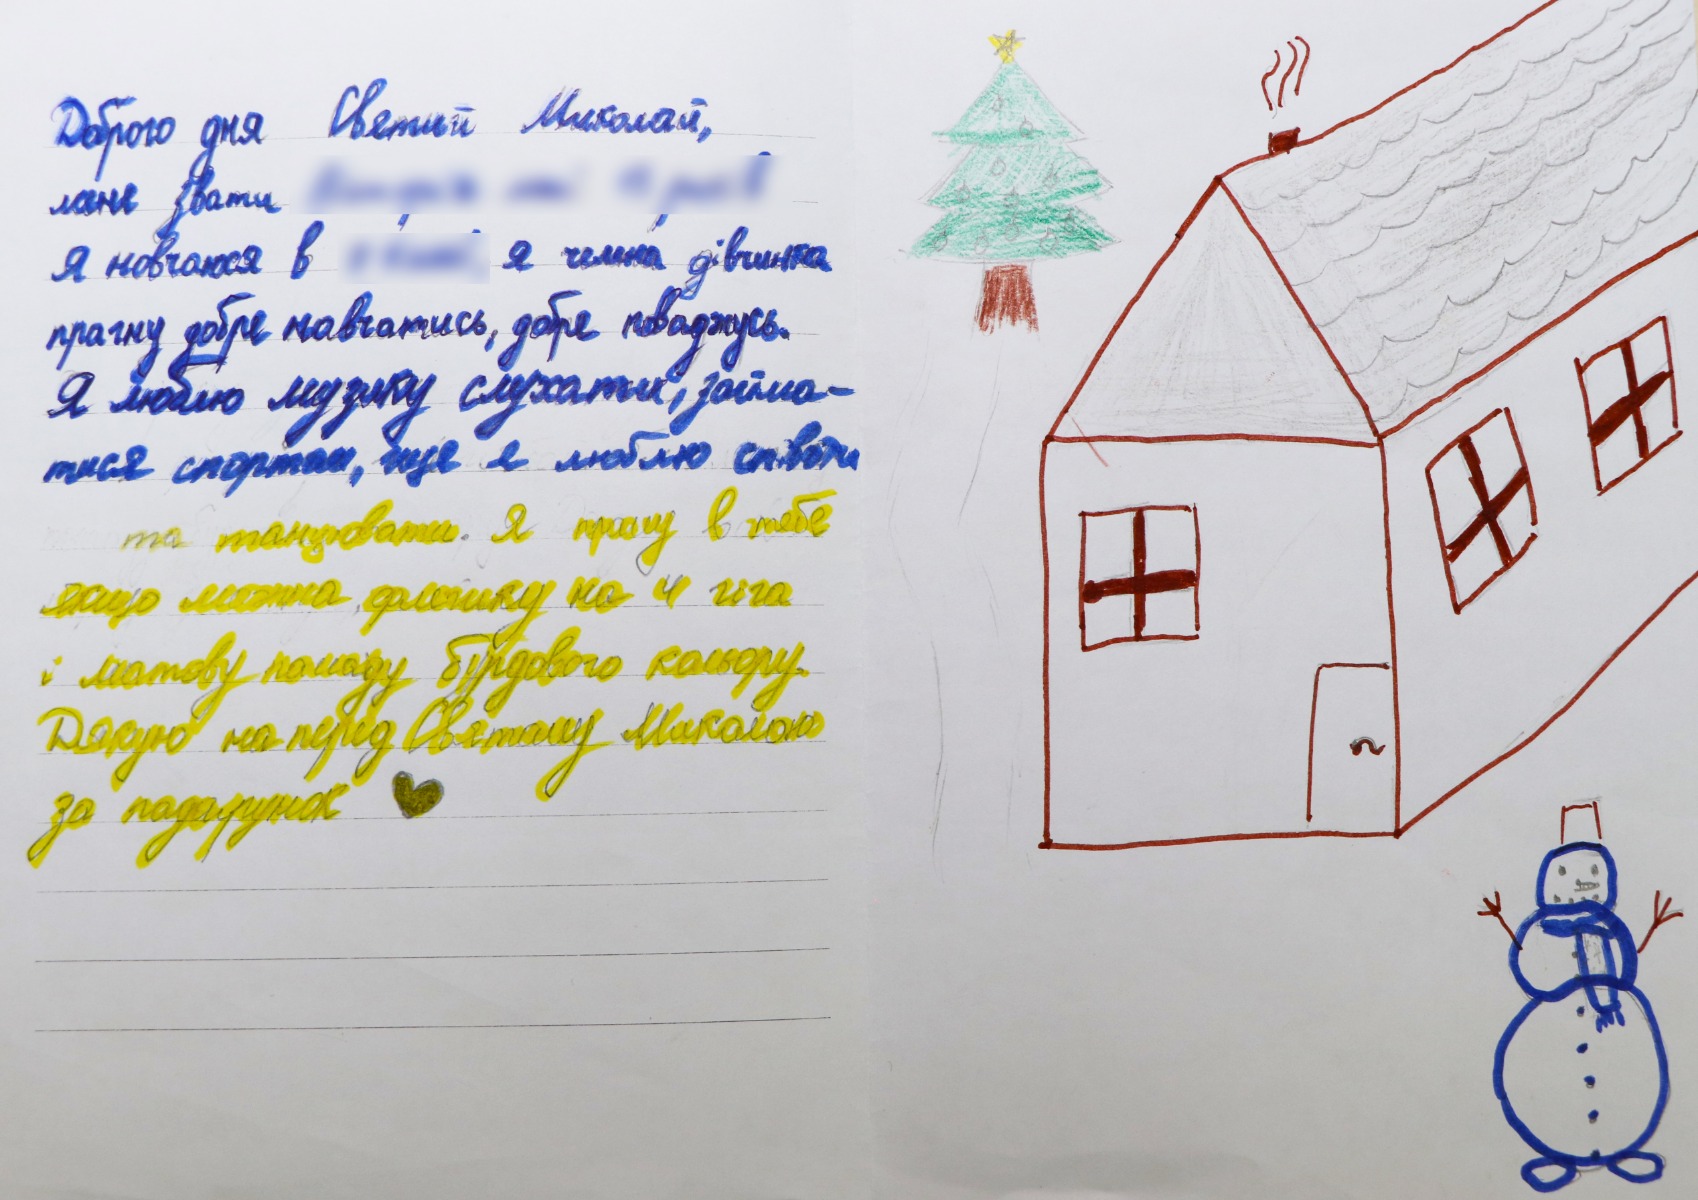 Доброго дня Святий Миколай,
мене звати
Я навчаюся в я чемна дівчинка
прагну добре навчатись, добре поваджусь.
Я люблю музику слухати, займа-
тися спортом, ще я люблю співати
та танцювати. Я прошу в тебе
якщо можна флешку на 4 гіга
і матову помаду бурдового кольору.
Дякую на перед Святому Миколаю
за подарунок